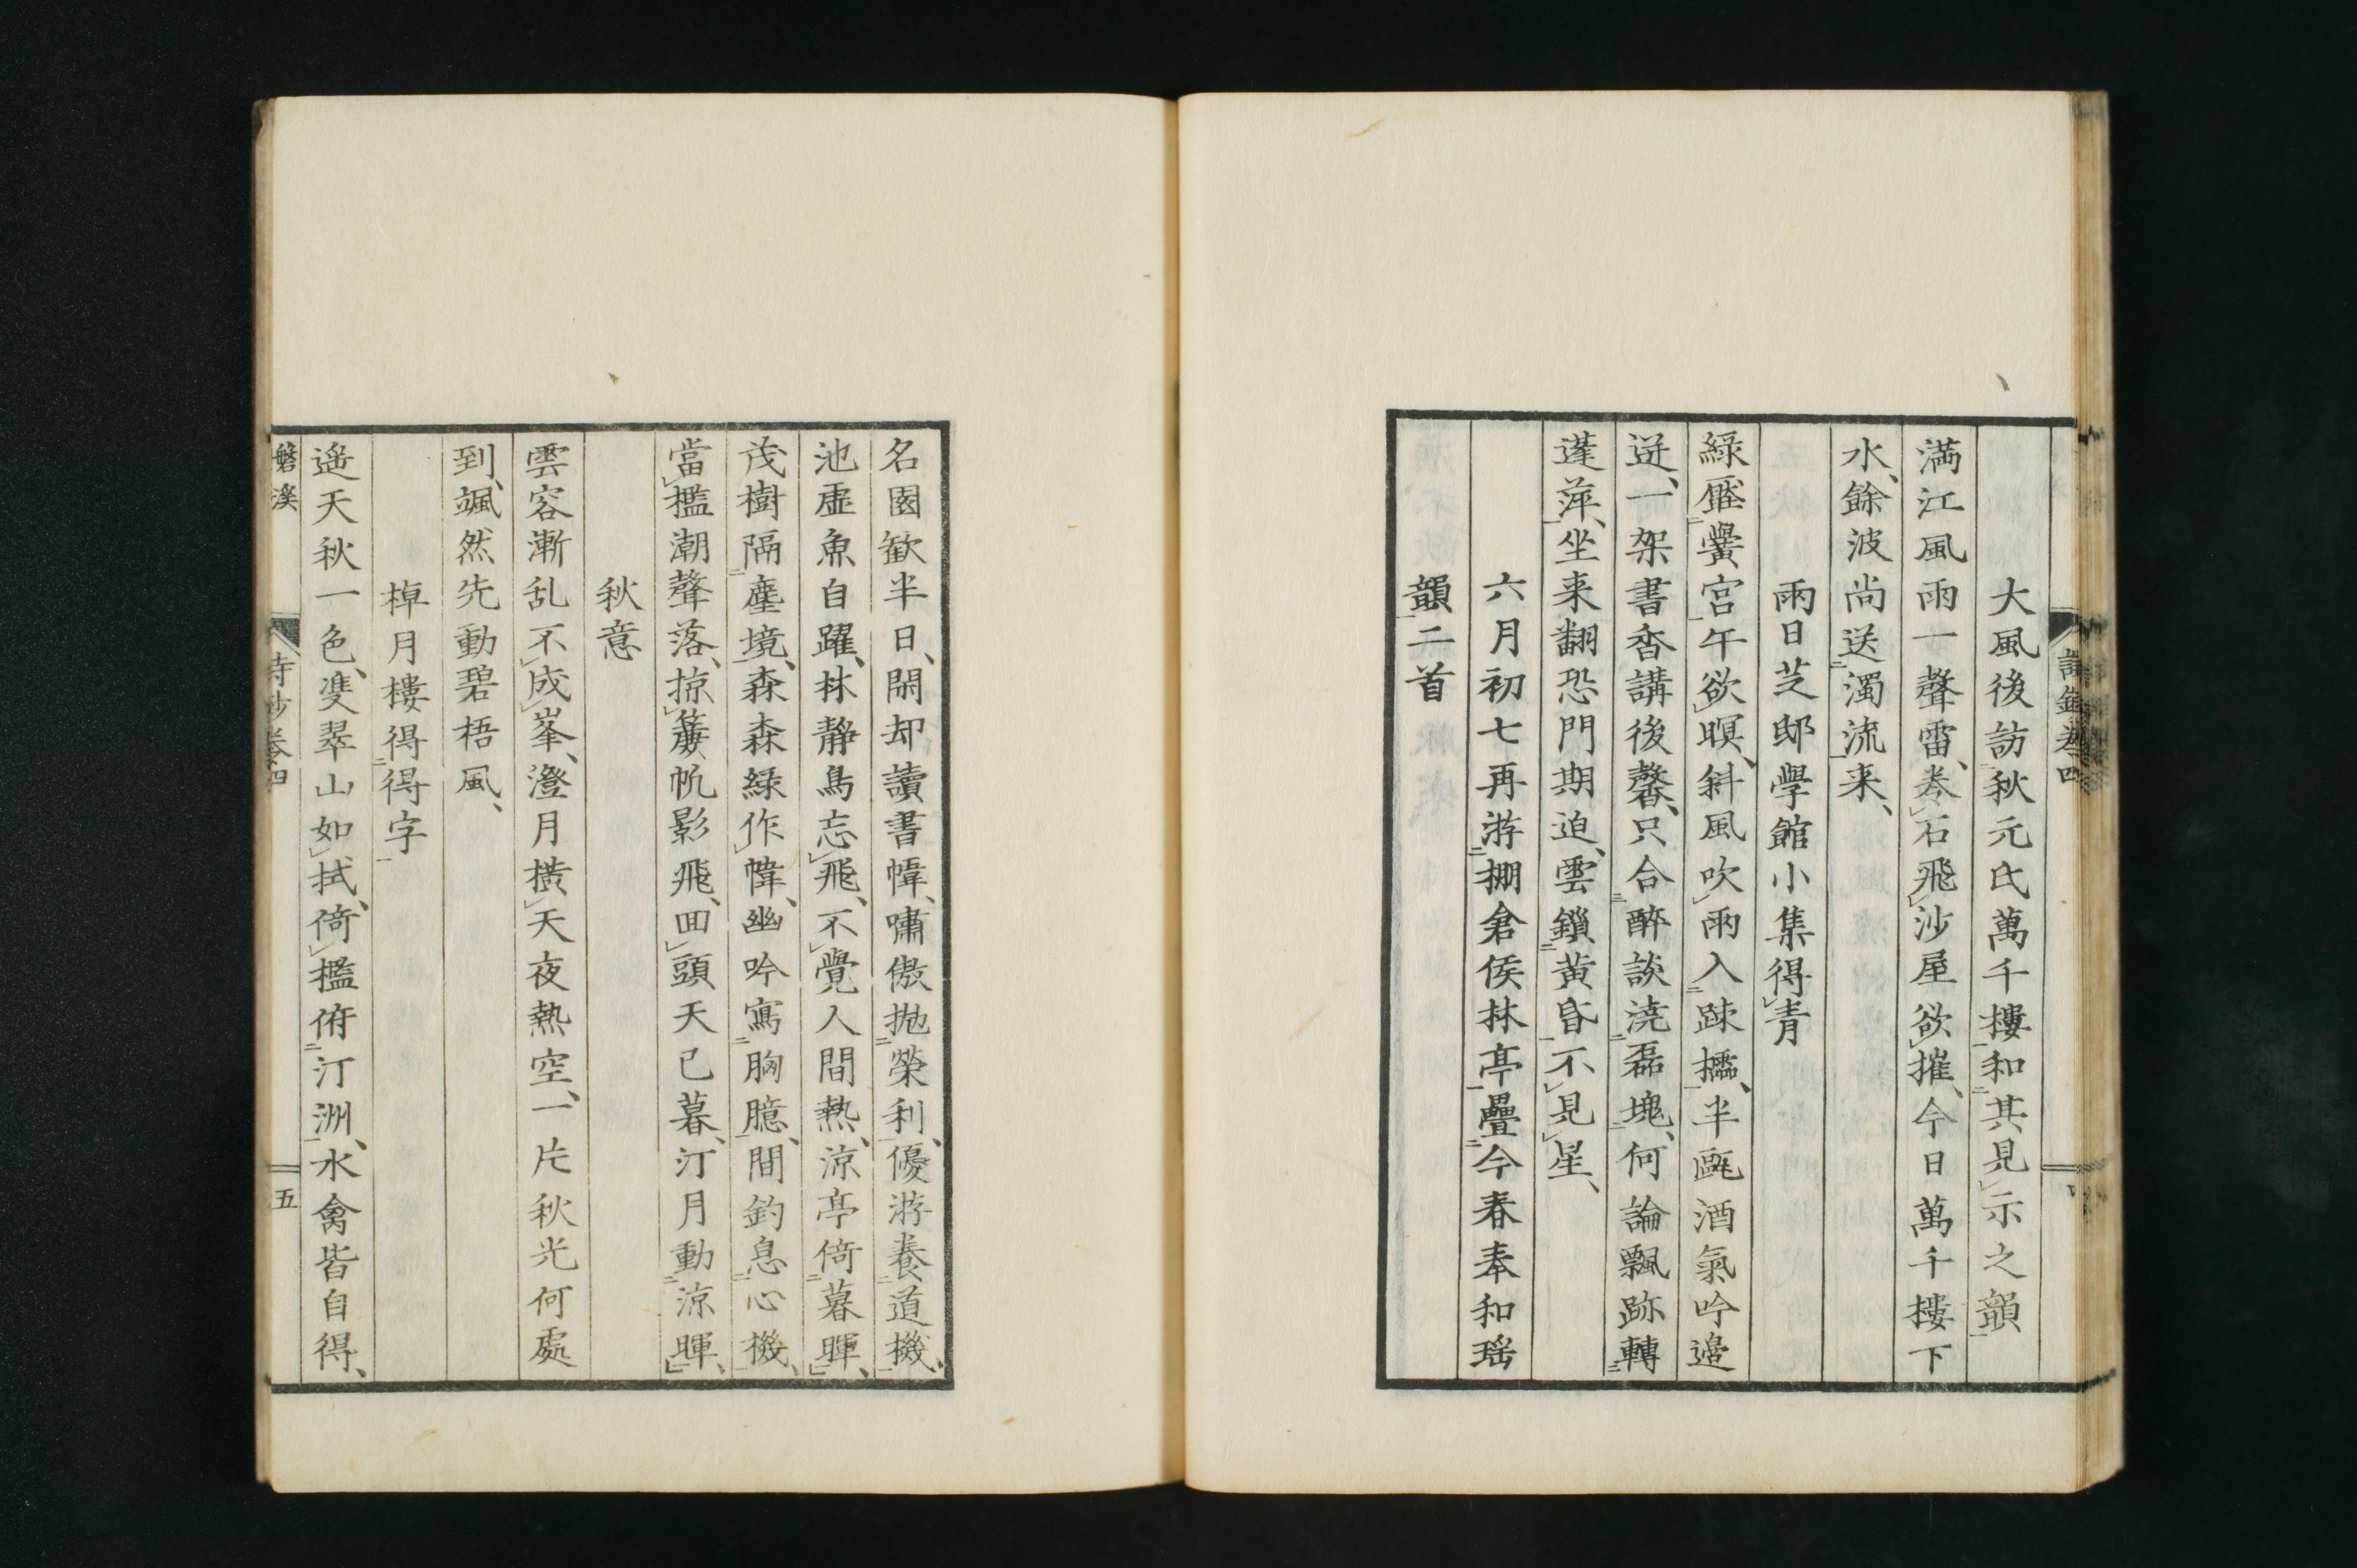 大風後訪秋元氏萬千樓和其見示之韻
滿江風雨一聲雷、卷石飛沙屋欲摧、今日萬千樓下
水、餘波尚送濁流来、
雨日芝邸學館小集得青
綠匲黌宮午欲暝、斜風吹雨入疎櫺、半甌酒氣吟邊
迸、一架書香講後馨、只合醉談澆磊塊、何論飄跡轉
蓬萍、坐来翻恐門期迫、雲鎖黃昏不見星、
六月初七再游棚倉侯林亭疊今春奉和瑶
韻二首
名園歓半日、閑却讀書幃、嘯傲抛榮利、優游養道機、
池虛魚自躍、林靜鳥忘飛、不覺人間熱、涼亭倚暮暉、
茂樹隔塵境、森森綠作幃、幽吟寫胸臆、間釣息心機、
當檻潮聲落、掠簾帆影飛、回頭天已暮、汀月動涼暉、
秋意
雲容漸乱不成峯、澄月橫天夜熱空、一片秋光何處
到、颯然先動碧梧風、
棹月樓得得字
遥天秋一色、雙翠山如拭、倚檻俯汀洲、水禽皆自得、
磐溪
詩鈔卷四
五